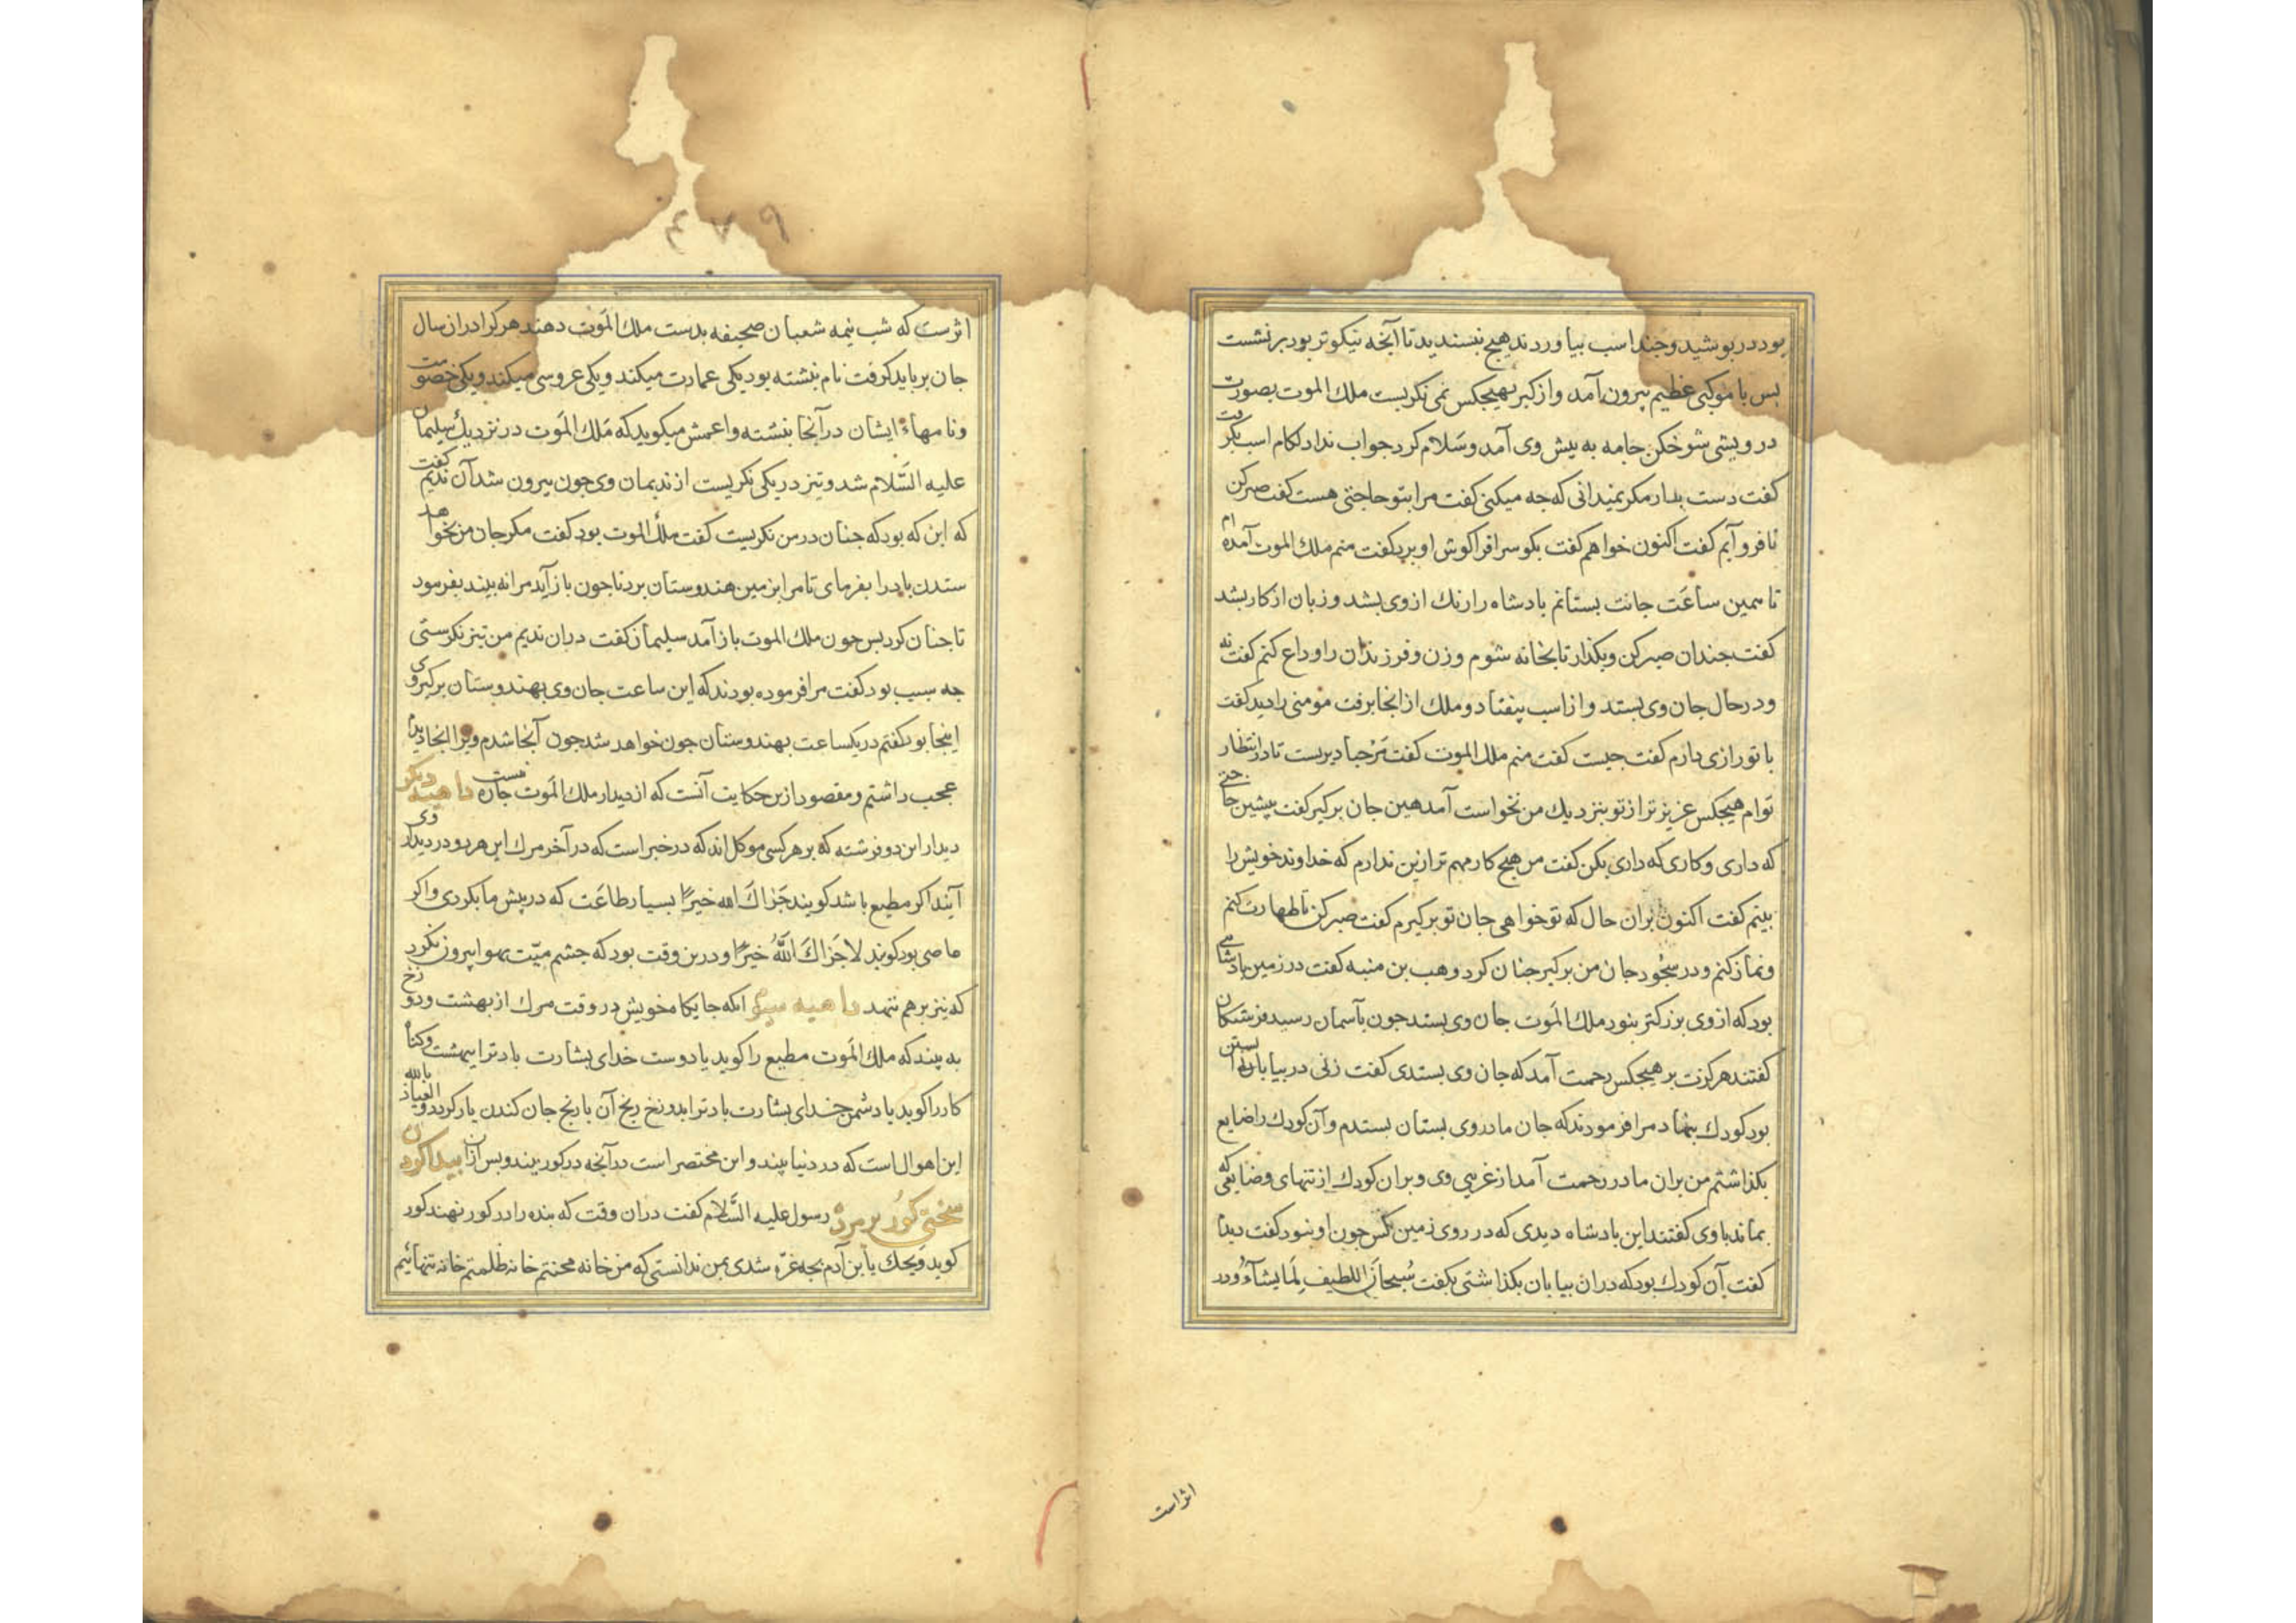 بود در بوشید و جند اسب بیاوردند هیج نبسندید تا آنجه نیکوتر بود برنشست
بس با موکبی عظیم بیرون آمد و از کبر بهیجکس نمی نکریست ملك الموت بصورت
درویشی شوخکن جامه به بیش وی آمد و سَلام کرد جواب نداد لکام اسب بکرفت
کفت دست بدار مکر نمیدانی که جه میکنی کفت مرا بتو حاجتی هست کفت صبر کن
تا فرو آیم کفت اکنون خواهم کفت بکو سر افرا کوش او برد کفت منم ملك الموت آمده ام
تا همین ساعَت جانت بستانم بادشاه را رنك از وی بشد و زبان از کار بشد
کفت جندان صبر کن و بکذار تا بخانه شوم و زن و فرزندان را وداع کنم کفت نه
و در حال جان وی بستد و از اسب بیفتاد و ملك از انجا برفت مومنی را دید کفت
با تو رازی دارم کفت جیست کفت منم ملك الموت کفت مَرْحبا دیرست تا در انتظار
توام هیجکس عزیزتر از تو بنزدیك من نخواست آمد هین جان برکیر کفت پیشین حاجتی
که داری و کاری که داری بکن کفت من هیج کار مهم تر ازین ندارم که خداوند خویش را
بینم کفت اکنون بران حال که تو خواهی جان تو برکیرم کفت صبر کن تا طهارت کنم
و نماز کنم و در سجُود جان من برکیر جنان کرد و هب بن منبه کفت در زمین پادشاهی
بود که از وی بزرکتر نبود ملك المَوت جان وی بستد جون بآسمان رسید فرشتکان
کفتند هرکزت بر هیجکس رحمت آمد که جان وی بستدی کفت زنی در بیابان آبستن
بود کودك بنهاد مرا فرمودند که جان مادر وی بستان بستدم و آن کودك را ضایع
بکذاشتم من بران مادر رحمت آمد از غریبی وی و بران کودك از تنهای و ضایعی که
بماند با وی کفتند این بادشاه دیدی که در روی زمین کس جون او نبود کفت دیدم
کفت آن کودك بود که دران بیابان بکذاشتی بکفت سُبحانَ اللطیف لِمَا یشآءُ و در
اثر است
٤٧٩
اثرست که شب نیمه شعبان صحیفه بدست ملك المَوت دهند هر کرا دران سال
جان بر باید کرفت نام نبشته بود یکی عمارت میکند و یکی عروسی میکند و یکی خصومت
و نامهاء ایشان در آنجا نبشته و اعمش میکوید که مَلك المَوت در نزدیك سُلیمان
علیه السَّلام شد و تیز در یکی نکریست از ندیمان وی جون بیرون شد آن ندیم کفت
که این که بود که جنان در من نکریست کفت ملكُ الموت بود کفت مکر جان من بخواهد
ستدن باد را بفرمای تا مرا بزمین هندوستان برد تا جون باز آید مرا نه بیند بفرمود
تا جنان کرد بس جون ملك الموت باز آمد سلیمان کفت دران ندیم من تیز نکرستی
جه سبب بود کفت مرا فرموده بودند که این ساعت جان وی بهندوستان برکیر و وی
اینجا بود کفتم در یکساعت بهندوستان جون خواهد شد جون آنجا شدم ویرا انجا دیدم
عجب داشتم و مقصود ازین حکایت آنست که از دیدار ملك المَوت جاره نیست داهیه دیکر
دیدار این دو فرشته که بر هر کسی موکل اند که در خبر است که در آخر مرك این هر دو در دیدار وی
آیند اکر مطیع باشد کویند جَزاكَ الله خیرًا بسیار طاعَت که در پیش ما بکردی و اکر
عاصی بود کویند لا جَزاكَ اللّٰهُ خیرًا و درین وقت بود که جشم میّت بهوا بیرون نکرد
که نیز برهم ننهد داهیه سیم انکه جایکاه خویش در وقت مرك از بهشت و دوزخ
به بیند که ملك المَوت مطیع را کوید یا دوست خدای بشارت باد ترا ببهشت و کناه
کار را کوید یا دشمن خدای بشارت باد ترا بدوزخ رنج آن با رنج جان کندن یار کردد و العیاذ بالله
این اهوال است که در دنیا بیند و این مختصر است در آنجه در کور بیند و بس ازان بیدا کردن
سختی کور بر مرده رسول علیه السَّلام کفت دران وقت که بنده را در کور نهند کور
کوید وَیحك یا ابن آدم بجه غرّه شدی بمن ندانستی که من خانه محنتم خانه ظلمتم خانه تنهائیم